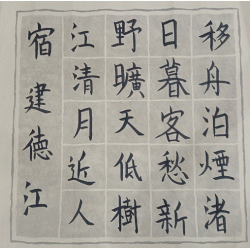 移舟泊煙渚
日暮客愁新
野曠天低樹
江清月近人
宿建德江